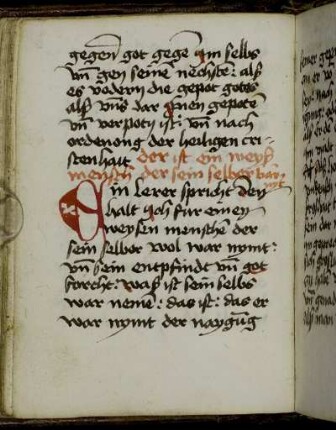 gegen got gege im selbs
vn̄ gen seine nechste: alß
es vodern die gepot gotes
alß vns dar jnen gepote
vn̄ verpotn ist: vn̄ nach
ordenong der heiligen cri-
stenhait der ist ein weyß
mensch der sein selber war
nymt
Ein lerer spricht den
halt ich fur einen
weysen menschē der
sein selber wol war nymt:
vn̄ sein entpfindt vn̄ got
forcht: waß ist sein selbs
war neme: das ist: das er
war nymt der naygūg